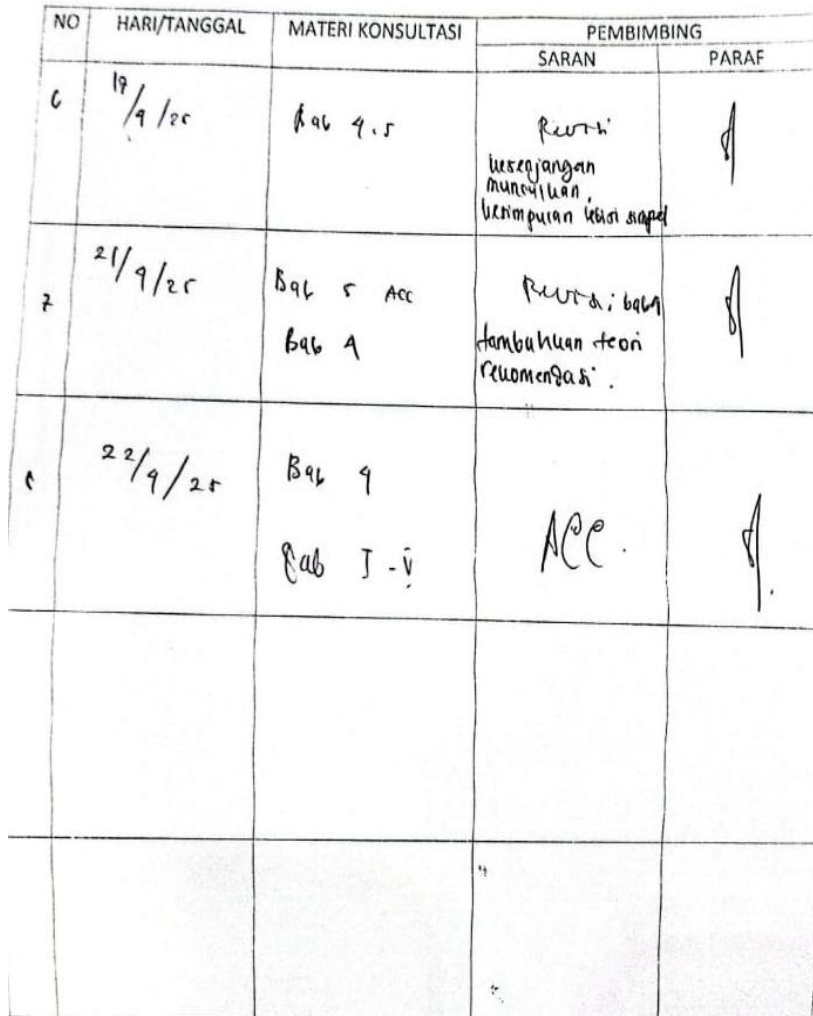 NO HARI/TANGGAL MATERI KONSULTASI PEMBIMBING
SARAN PARAF
6 19/9/25 Bab 4.5 Revisi
kesenjangan
munculkan,
kesimpulan
7 21/9/25 Bab 5 ACC Revisi bab 4
Bab 4 tambahkan teori
rekomendasi.
22/9/25 Bab 4
ACC.
Bab I - V